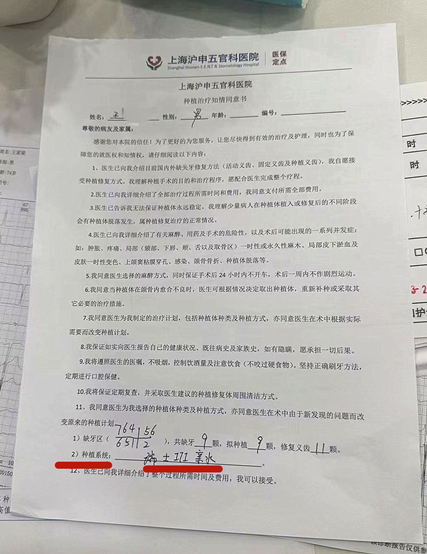 上海沪申五官科医院
医保
定点
Shanghai Hushen E.E.N.T & Stomatology Hospital
上海沪申五官科医院
种植治疗知情同意书
姓名: 性别: 男 年龄: 编号:
尊敬的病友及家属:
感谢您对本院的信任!为了更好的为您服务,让您尽快得到有效的治疗及护理,同时也为了保
障您的就医权和知情权,请仔细阅读以下内容:
1、医生已向我介绍目前国内外缺失牙修复方法(活动义齿、固定义齿及种植义齿),我自愿接
受种植修复方式。我理解种植手术的目的和治疗程序,愿配合医生完成整个疗程。
2.医生已向我详细介绍了全部治疗过程所需时间和费用,我同意支付所需全部费用。
3.医生已告诉我无法保证种植体永远稳定,我理解少量病人在种植体植入或修复后的不同阶段
会有种植体脱落发生,属种植修复治疗的正常情况。
4.医生已向我详细介绍了有关麻醉、用药及手术的危险性,以及术后可能出现的一系列并发症;
如:肿胀、疼痛、局部(颊部、下唇、颏、舌以及取骨区)一时性或永久性麻木、局部皮下淤血及
皮肤一时性变色、上颌窦粘膜穿孔、感染、颌骨骨折、种植体脱落等。
5.我同意医生选择的麻醉方式,同时保证手术后24小时内不开车,术后一周内不作剧烈运动。
6.我同意当种植体在颌骨内愈合不良时,医生可根据情况决定取出种植体,重新补种或采取其
它必要的治疗措施。
7.我同意医生为我制定的治疗计划,包括种植体种类及种植方式,亦同意医生在术中根据实际
需要而改变种植计划。
8.我保证如实向医生报告自己的健康状况、既往病史及家族史,如有隐瞒,愿承担一切后果。
9.我将遵照医生的医嘱,不吸烟,控制饮酒量及注意饮食(不咬过硬食物),坚持正确刷牙方法,
定期进行口腔保健。
10.我将保证定期复查,并采取医生建议的种植修复体周围清洁方式。
11、我同意医生为我选择的种植体种类及种植方式,亦同意医生在术中由于新发现的问题而改
变原来的种植计划
764 56
1)缺牙区( 651 2 ),共缺牙 9 颗,拟种植 9 颗,修复义齿 11 颗。
2)种植系统: 瑞士ITI亲水 。
12、医生已向我详细介绍了整个过程所需时间及费用,我可以接受。